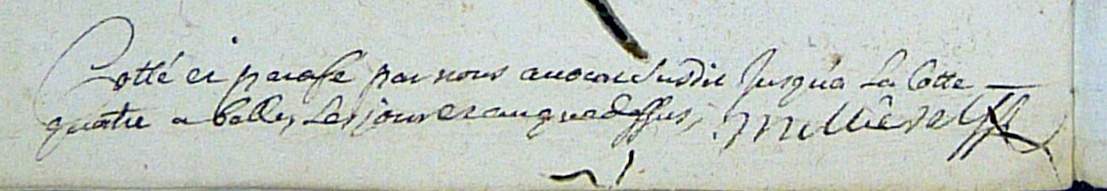 Cotté et parafé par nous avocat susdit Jusqua La Cotte
quatre a belle, Les jour et an que dessus,